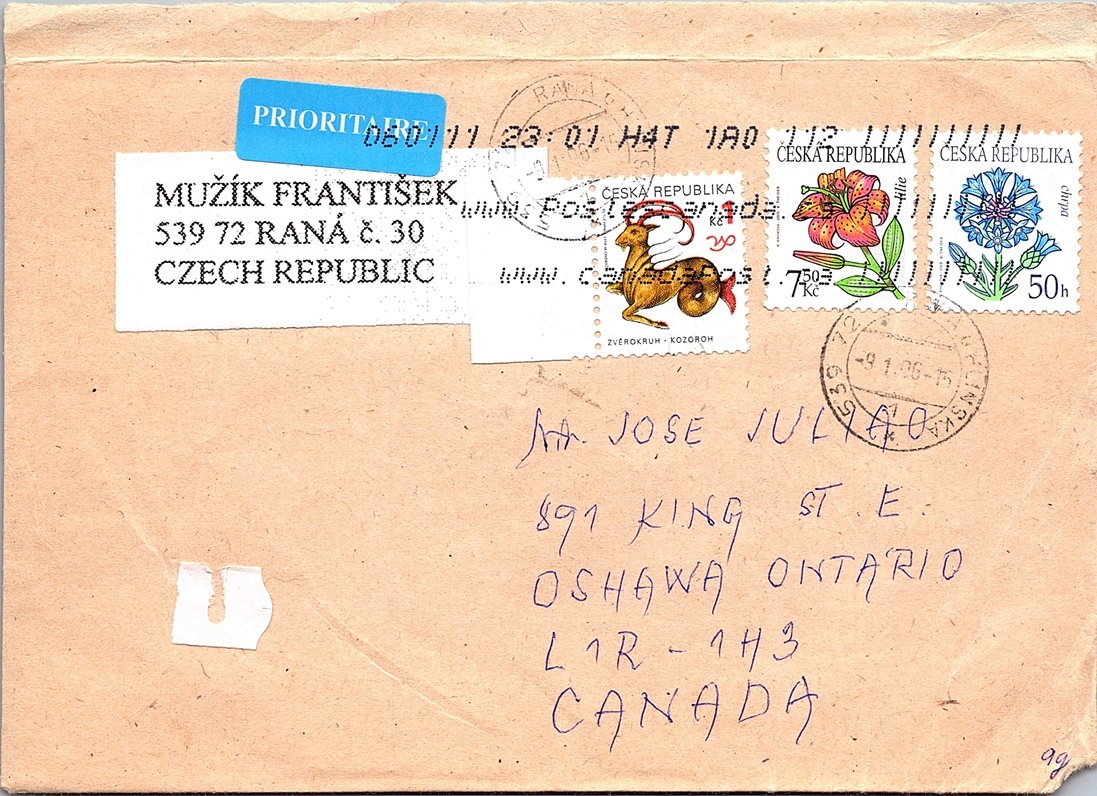 PRIORITAIRE
080111 23:01 H4T 1A0 112
MUŽÍK FRANTIŠEK
539 72 RANÁ č. 30
CZECH REPUBLIC
ČESKÁ REPUBLIKA
1
Kč
ZVĚROKRUH · KOZOROH
ČESKÁ REPUBLIKA
lilie
7,50
Kč
ČESKÁ REPUBLIKA
chrpa
50h
www.PostesCanada.ca
www.CanadaPost.ca
539 72
-9.1.06-15
NA JOSE JULIAO
891 KING ST. E.
OSHAWA ONTARIO
L1R - 1H3
CANADA
9g